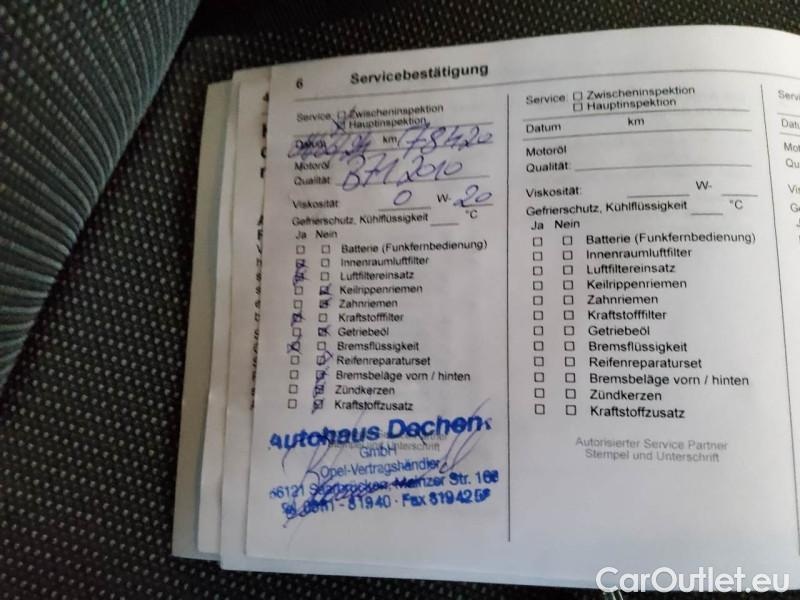 6 Servicebestätigung
Service: Zwischeninspektion
Hauptinspektion
Datum km 78420
Motoröl
Qualität: B71 2010
Viskosität: 0 W- 20
Gefrierschutz, Kühlflüssigkeit °C
Ja Nein
Batterie (Funkfernbedienung)
Innenraumluftfilter
Luftfiltereinsatz
Keilrippenriemen
Zahnriemen
Kraftstofffilter
Getriebeöl
Bremsflüssigkeit
Reifenreparaturset
Bremsbeläge vorn / hinten
Zündkerzen
Kraftstoffzusatz
Autohaus Dechent
GmbH
Stempel und Unterschrift
Opel-Vertragshändler
66121 Saarbrücken, Mainzer Str. 168
Tel. 0681 - 81940 · Fax 819425
Service: Zwischeninspektion
Hauptinspektion
Datum km
Motoröl
Qualität:
Viskosität: W-
Gefrierschutz, Kühlflüssigkeit °C
Ja Nein
Batterie (Funkfernbedienung)
Innenraumluftfilter
Luftfiltereinsatz
Keilrippenriemen
Zahnriemen
Kraftstofffilter
Getriebeöl
Bremsflüssigkeit
Reifenreparaturset
Bremsbeläge vorn / hinten
Zündkerzen
Kraftstoffzusatz
Autorisierter Service Partner
Stempel und Unterschrift
CarOutlet.eu